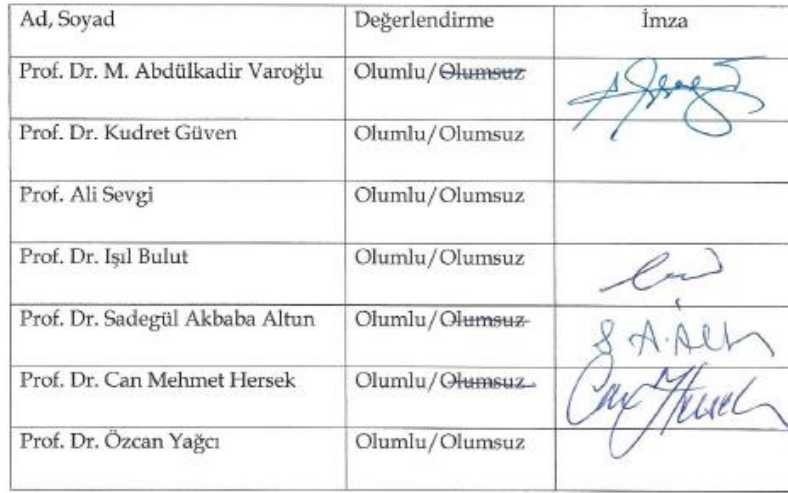 Ad, Soyad Değerlendirme İmza
Prof. Dr. M. Abdülkadir Varoğlu Olumlu/Olumsuz
Prof. Dr. Kudret Güven Olumlu/Olumsuz
Prof. Ali Sevgi Olumlu/Olumsuz
Prof. Dr. Işıl Bulut Olumlu/Olumsuz
Prof. Dr. Sadegül Akbaba Altun Olumlu/Olumsuz S. A. Altun
Prof. Dr. Can Mehmet Hersek Olumlu/Olumsuz Can Hersek
Prof. Dr. Özcan Yağcı Olumlu/Olumsuz